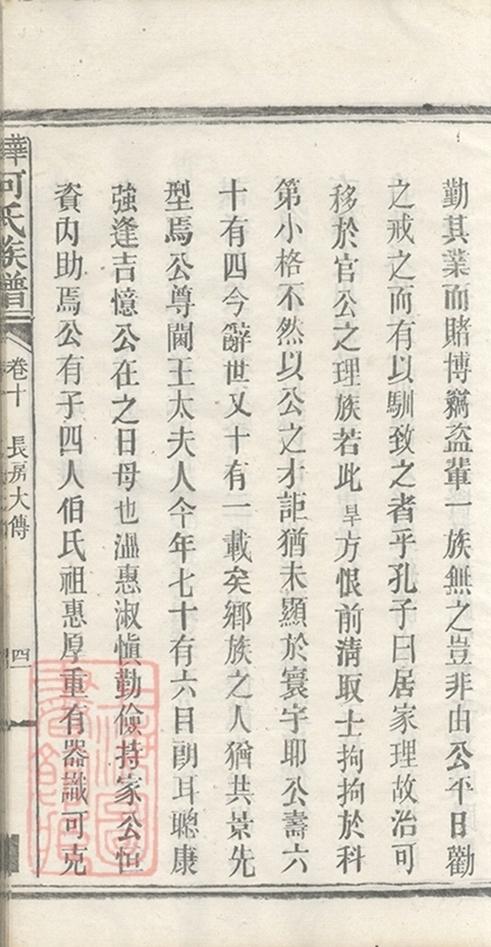 勤其業而賭博竊盜輩一族無之豈非由公平日勸
之戒之而有以馴致之者乎孔子曰居家理故治可
移於官公之理族若此旱方恨前清取士拘拘於科
第小格不然以公之才詎猶未顯於寰宇耶公壽六
十有四今辭世又十有一載矣鄉族之人猶其景先
型焉公尊閫王太夫人今年七十有六目朗耳聰康
強逢吉憶公在之日母也溫惠淑慎勤儉持家公恒
資內助焉公有子四人伯氏祖惠厚重有器識可克
何氏族譜
卷十 長房大傳
四